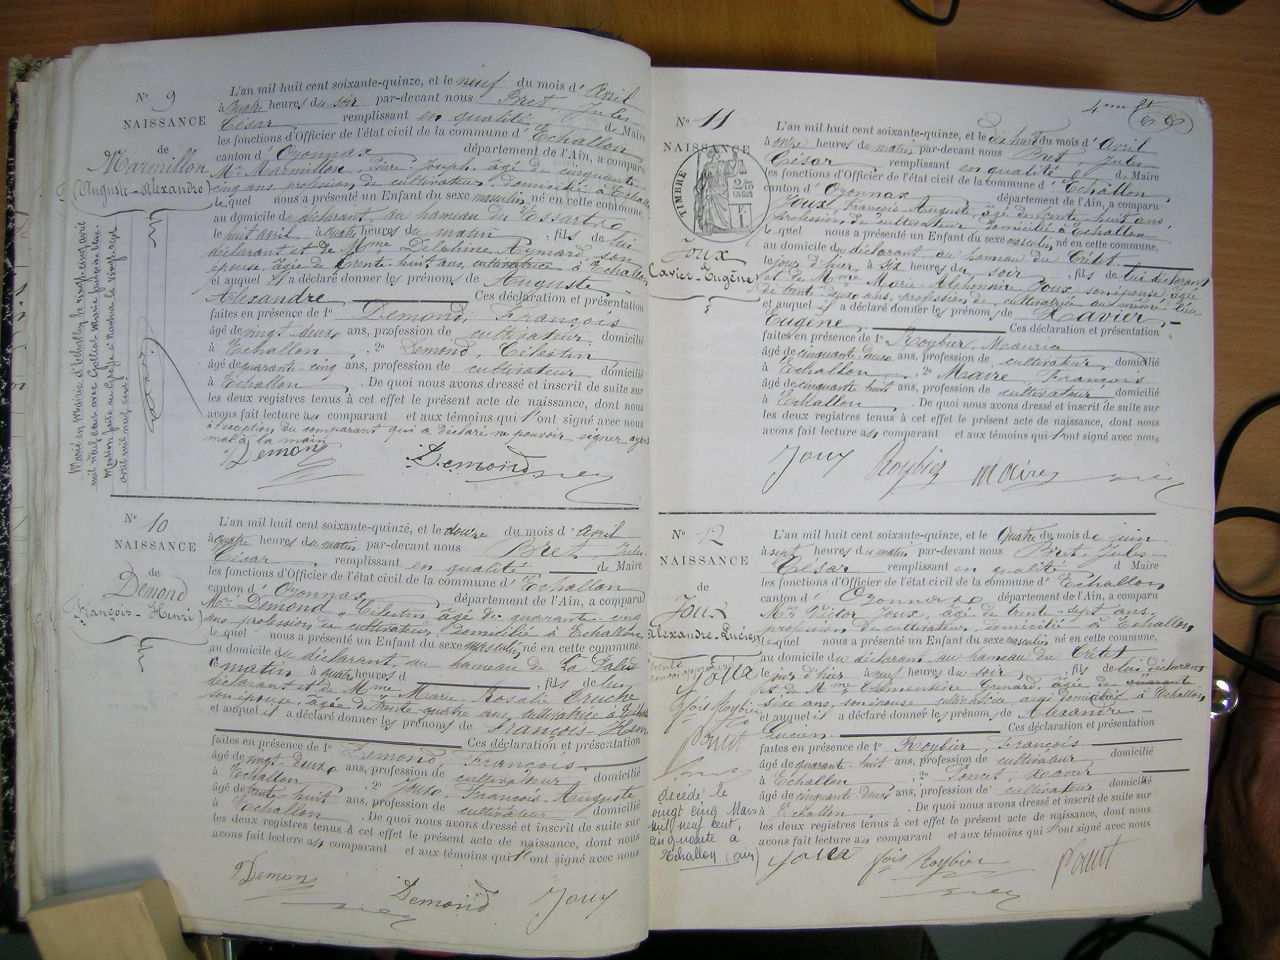 N° 9
NAISSANCE
de
Marmillon
(Auguste-Alexandre)
L'an mil huit cent soixante-quinze, et le neuf du mois d'Avril
à quatre heures du soir par-devant nous Bret, Jules-
César, remplissant en qualité de Maire
les fonctions d'Officier de l'état civil de la commune d'Echallon
canton d'Oyonnax département de l'Ain, a comparu
Mr Marmillon, Joseph, âgé de cinquante
cinq ans, profession de cultivateur, domicilié à Echallon
lequel nous a présenté un Enfant du sexe masculin, né en cette commune,
au domicile du déclarant au hameau du
le huit avril à quatre heures du matin, fils de lui
déclarant et de Mme Delphine Aymard, son
épouse, âgée de trente-huit ans, cultivatrice à Echallon
et auquel il a déclaré donner les prénoms de Auguste-
Alexandre Ces déclaration et présentation
faites en présence de 1° Demond, François
âgé de vingt-deux ans, profession de cultivateur, domicilié
à Echallon, 2° Demond, Célestin
âgé de quarante-cinq ans, profession de cultivateur domicilié
à Echallon. De quoi nous avons dressé et inscrit de suite sur
les deux registres tenus à cet effet le présent acte de naissance, dont nous
avons fait lecture au comparant et aux témoins qui l'ont signé avec nous
à l'exception du comparant qui a déclaré ne pouvoir signer ayant
mal à la main
Demond Demond
Marié en Mairie d'Echallon le vingt cinq avril
N° 10
NAISSANCE
de
Demond
François-Henri
L'an mil huit cent soixante-quinze, et le douze du mois d'Avril
à quatre heures du matin par-devant nous Bret, Jules-
César, remplissant en qualité de Maire
les fonctions d'Officier de l'état civil de la commune d'Echallon
canton d'Oyonnax, département de l'Ain, a comparu
Mr Demond, Célestin, âgé de quarante-cinq
ans, profession de cultivateur, domicilié à Echallon,
lequel nous a présenté un Enfant du sexe masculin, né en cette commune,
au domicile du déclarant, au hameau de La Palud
le matin, à quatre heures d fils de lui
déclarant et de Mme Marie Rosalie Truche
son épouse, âgée de trente-quatre ans, cultivatrice à Echallon
et auquel il a déclaré donner les prénoms de François-Henri
Ces déclaration et présentation
faites en présence de 1° Demond, François
âgé de vingt-deux ans, profession de cultivateur domicilié
à Echallon, 2° Joux, François-Auguste
âgé de trente-huit ans, profession de cultivateur domicilié
à Echallon. De quoi nous avons dressé et inscrit de suite sur
les deux registres tenus à cet effet le présent acte de naissance, dont nous
avons fait lecture au comparant et aux témoins qui l'ont signé avec nous
Demond Demond Joux
4me ft
N° 11
NAISSANCE
TIMBRE
Joux
Xavier-Eugène
L'an mil huit cent soixante-quinze, et le dix huit du mois d'Avril
à onze heures du matin par-devant nous Bret, Jules-
César remplissant en qualité de Maire
les fonctions d'Officier de l'état civil de la commune d'Echallon
canton d'Oyonnax département de l'Ain, a comparu
Joux, François-Auguste, âgé de trente-huit ans,
profession de cultivateur domicilié à Echallon
lequel nous a présenté un Enfant du sexe masculin, né en cette commune,
au domicile du déclarant au hameau du Crétet
le jour d'hier, à six heures du soir, fils de lui déclarant
et de Mme Marie Alphonsine Joux, son épouse, âgée
de trente-deux ans, profession de cultivatrice au même lieu
et auquel il a déclaré donner les prénoms de Xavier-
Eugène, Ces déclaration et présentation
faites en présence de 1° Roybier, Maurice
âgé de cinquante-deux ans, profession de cultivateur, domicilié
à Echallon, 2° Maire, François
âgé de cinquante-huit ans, profession de cultivateur domicilié
à Echallon. De quoi nous avons dressé et inscrit de suite sur
les deux registres tenus à cet effet le présent acte de naissance, dont nous
avons fait lecture au comparant et aux témoins qui l'ont signé avec nous,
Joux Roybier Maire
N° 12
NAISSANCE
de
Joux
Alexandre-Lucien
L'an mil huit cent soixante-quinze, et le Quatre du mois de juin
à sept heures du matin par-devant nous Bret Jules-
César remplissant en qualité d Maire
les fonctions d'Officier de l'état civil de la commune d'Echallon
canton d'Oyonnax département de l'Ain, a comparu
Mr Victor Joux, âgé de trente-sept ans,
profession de cultivateur, domicilié à Echallon,
lequel nous a présenté un Enfant du sexe masculin, né en cette commune,
au domicile du déclarant au hameau du Crétet
le jour d'hier à neuf heures du soir, fils de lui déclarant
et de Mme Clémentine Grenard, âgée de quarante
ans, son épouse cultivatrice aussi domiciliée à Echallon,
et auquel il a déclaré donner les prénoms de Alexandre-
Lucien. Ces déclaration et présentation
faites en présence de 1° Roybier, François
âgé de quarante-huit ans, profession de cultivateur domicilié
à Echallon, 2° Poncet, Xavier
âgé de cinquante-deux ans, profession de cultivateur domicilié
à Echallon. De quoi nous avons dressé et inscrit de suite sur
les deux registres tenus à cet effet le présent acte de naissance, dont nous
avons fait lecture au comparant et aux témoins qui l'ont signé avec nous
Joux fois Roybier Poncet
Joux
fois Roybier
Poncet
décédé le
vingt cinq Mars
mil neuf cent
cinquante à
Echallon (Ain)